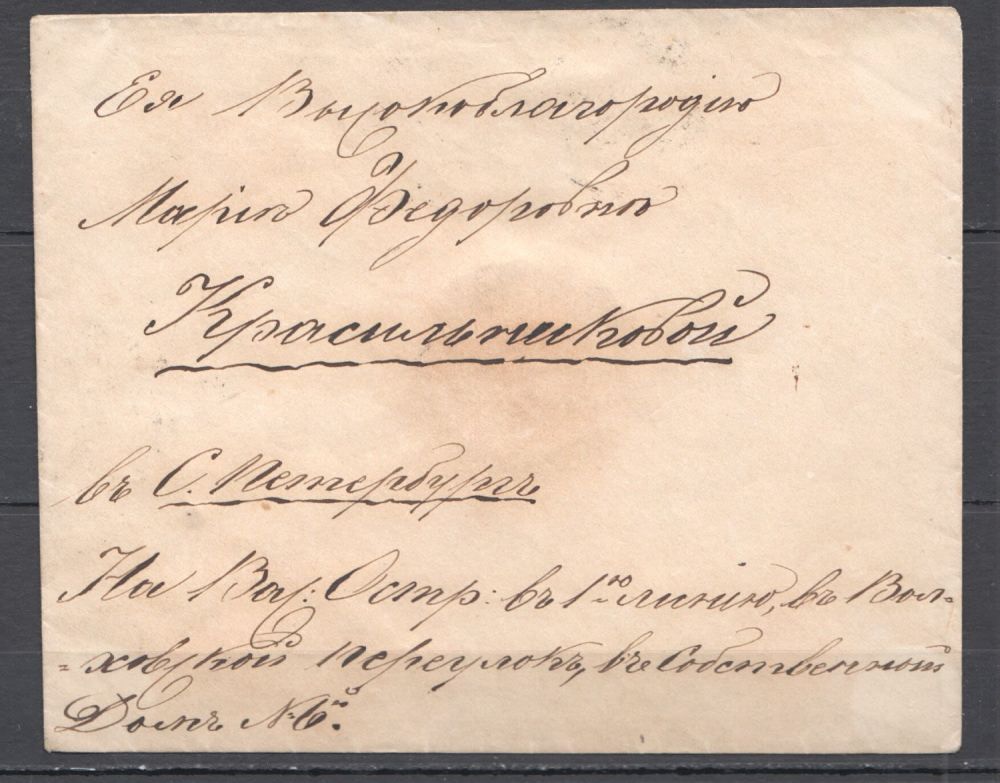 Ея Высокоблагородiю
Марiи Федоровнѣ
Красильниковой
въ С. Петербургъ
На Вас: Остр: въ 1ю линiю, въ Вол-
-ховской переулокъ, въ Собственный
Домъ № 6й.